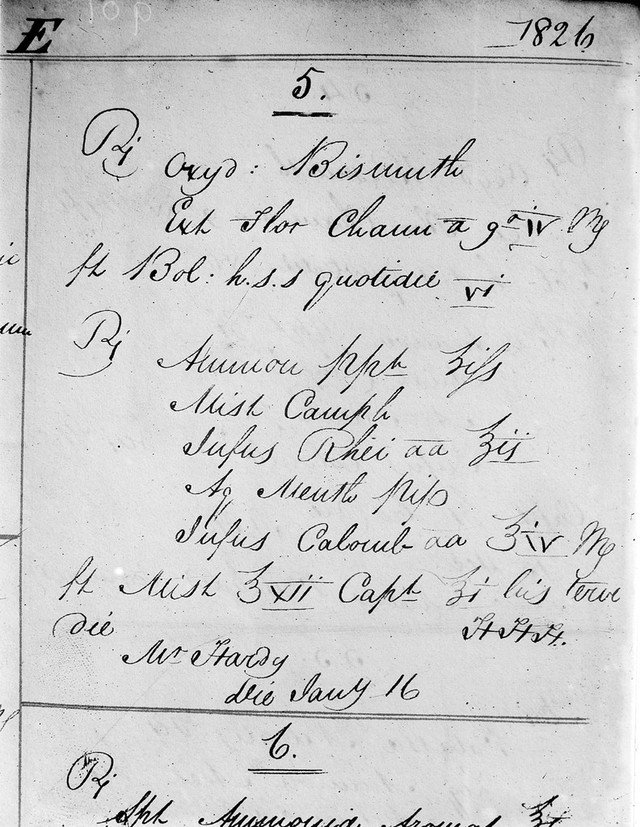 E 1826
5.
Rj
Oxyd: Bismuth
Ext Flor Cham a gr iv M
ft Bol: h.s.s quotidie vi
Rj
Ammon ppt ʒifs
Mist Camph
Infus Rhei aa ℥ii
Aq Menth pip
Infus Calomb aa ℥iv M
ft Mist ℥xii Capt ℥i bis terve
die
H H H.
Mr Hardy
die Jany 16
6.
Rj
Spt Ammonia Aromat